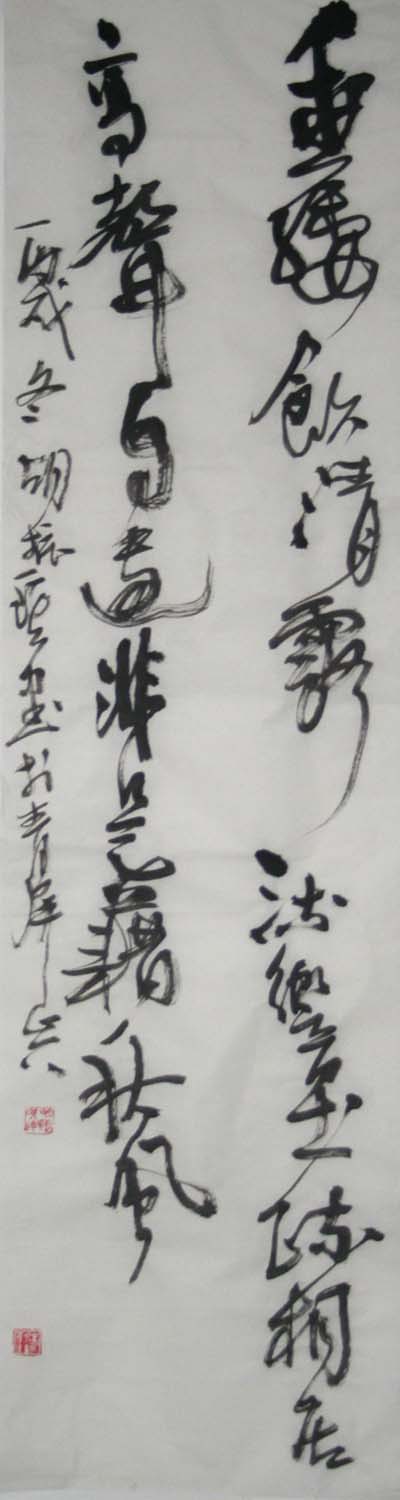 垂緌飲清露流響出疏桐居
高聲自遠非是藉秋風
丙戌冬胡振